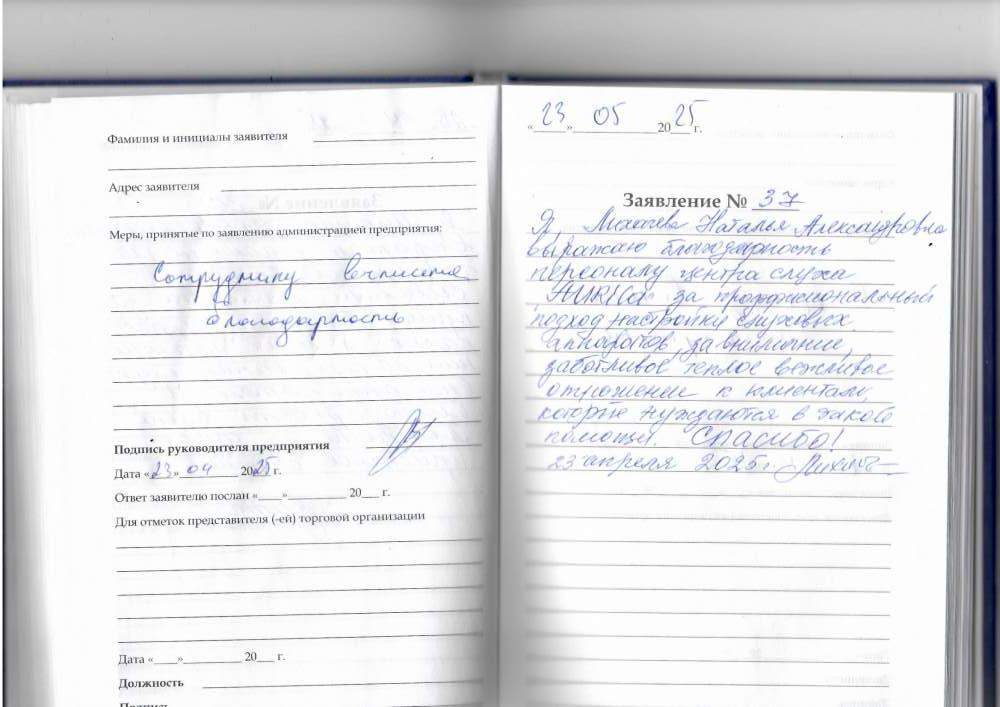 Фамилия и инициалы заявителя
Адрес заявителя
Меры, принятые по заявлению администрацией предприятия:
Сотруднику
благодарность
Подпись руководителя предприятия
Дата «23» 04 2025 г.
Ответ заявителю послан «» 20 г.
Для отметок представителя (-ей) торговой организации
Дата «» 20 г.
Должность
Подпись
«23» 05 2025 г.
Заявление № 37
Я, Наталья Александровна
выражаю благодарность
персоналу центра слуха
AURICA за профессиональный
подход настройки слуховых
аппаратов, за внимание,
заботливое теплое вежливое
отношение к клиентам,
которые нуждаются в такой
помощи. СПАСИБО!
23 апреля 2025г.